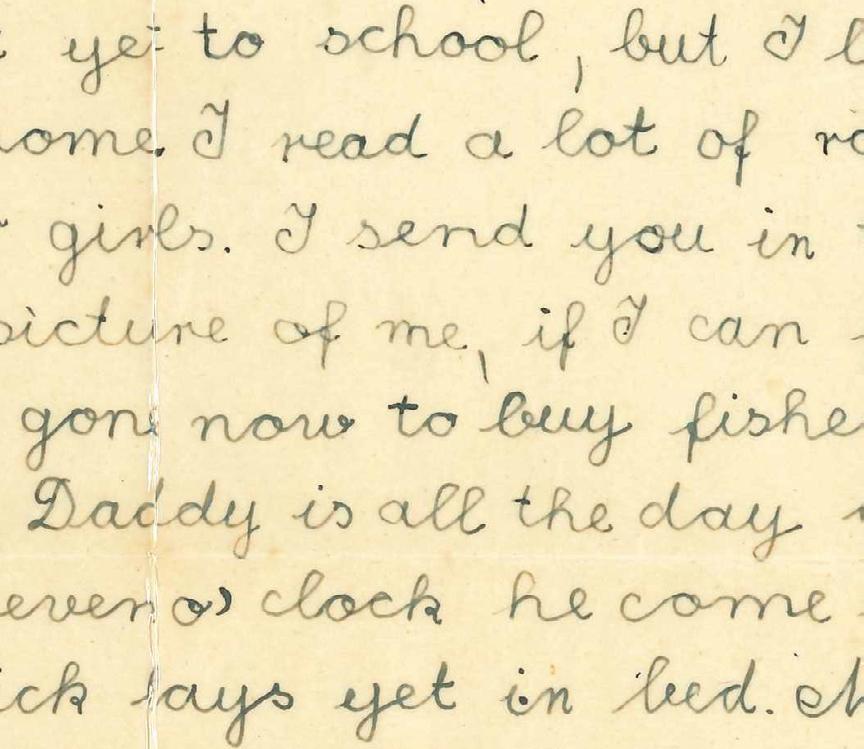 yet to school, but I
I read a lot of
girls. I send you in
picture of me, if I can
gone now to buy
Daddy is all the day
o' clock he come
lays yet in bed.